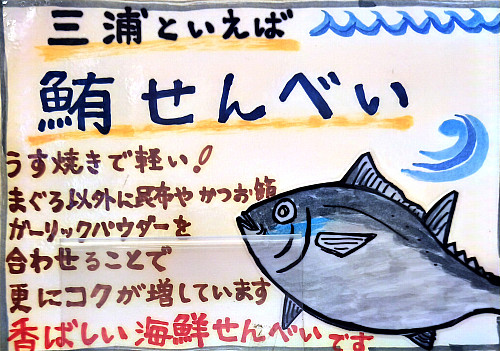 三浦といえば
鮪せんべい
うす焼きで軽い!
まぐろ以外に昆布やかつお節
ガーリックパウダーを
合わせることで
更にコクが増しています
香ばしい海鮮せんべいです